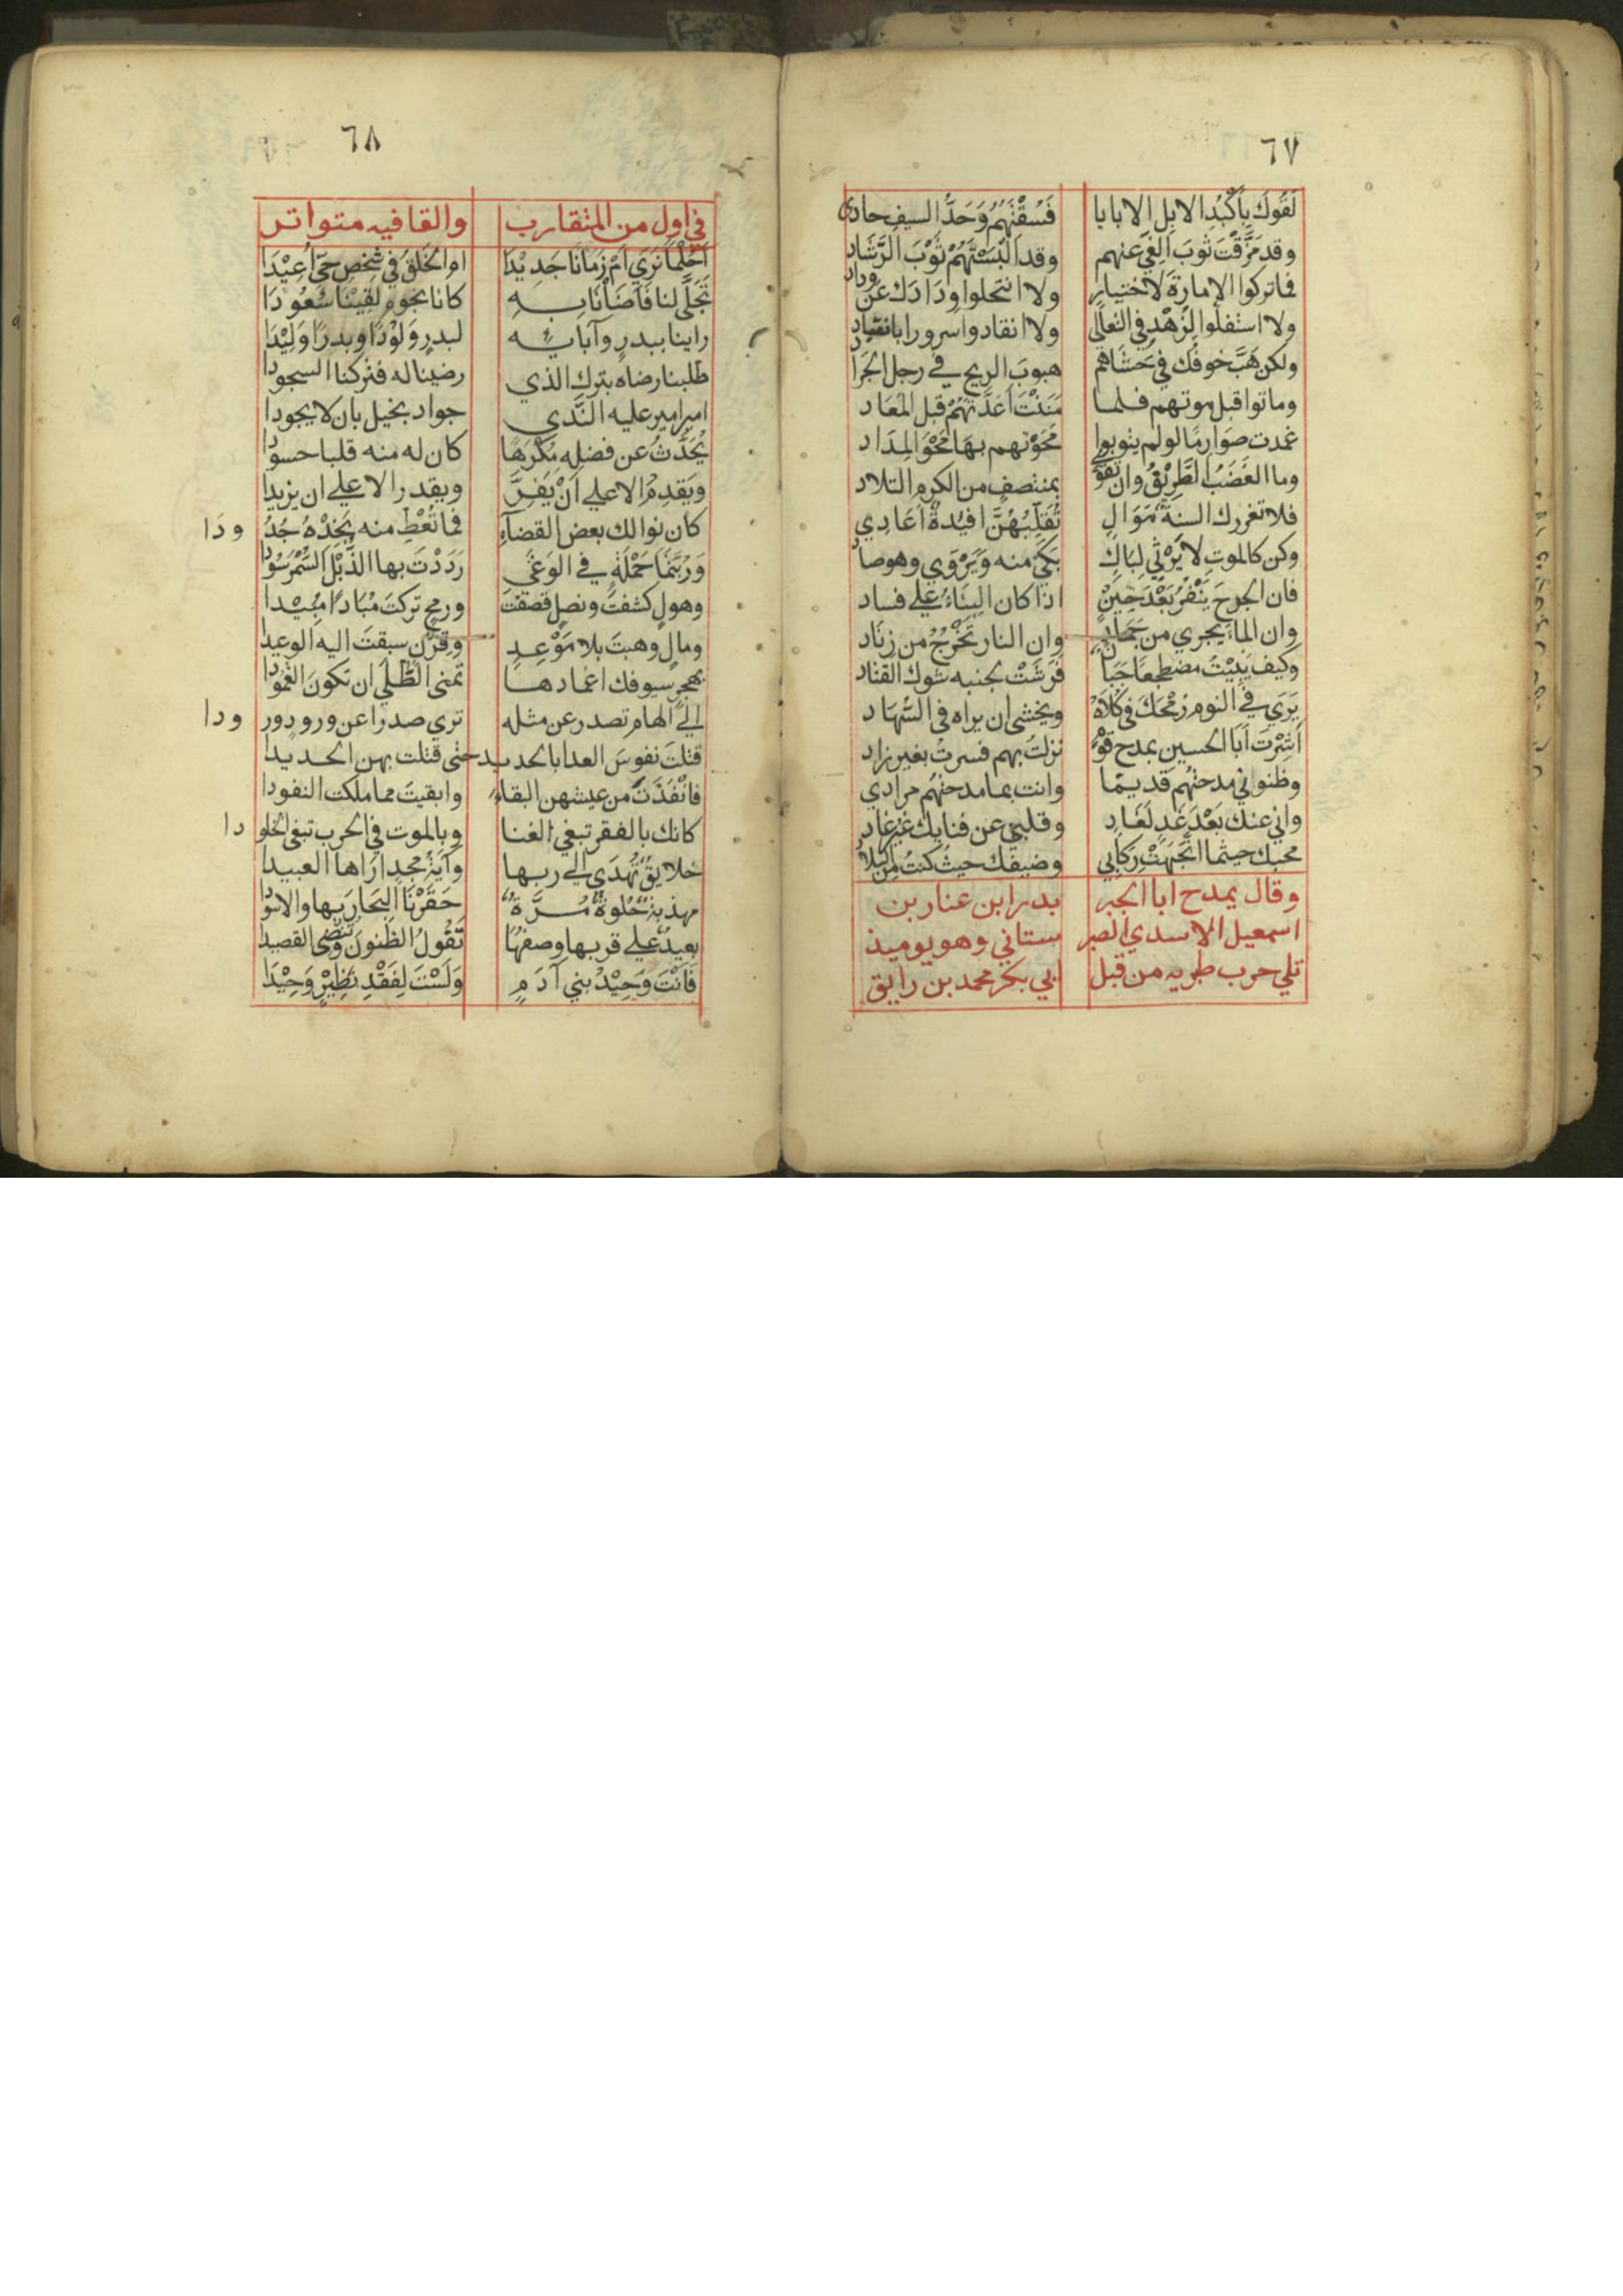 ٦٧
لَقُوكَ بِأَكْبُدِ الابل الابايا فَسُقْتَهُمُ وَحَدُّ السيف حادى
وقد مَزَّقْتَ ثَوبَ الغَىِّ عنهم وقد الْبَسْتَهُمْ ثَوْبَ الرَّشَاد
فما تركوا الامارة لاختيار ولا انتحلوا وِدَادَك عن وداد
ولا استفلوا لِزُهْدٍ في التعالى ولا انقادوا سرورا بانقياد
ولكن هَبَّ خوفُك في حَشَاهم هبوبَ الريح في رجل الجَرَاد
وماتوا قبل موتهم فلما مَنَنْتَ اَعَدْتَهُمْ قبل المَعَاد
غمدت صَوَارِمًا لو لم يتوبوا مَحَوْتهم بهَا مَحْوَ المِدَاد
وما الغَضَبُ الطَّرِيْفُ وان تَقَوَّى بمنتصفٍ من الكرم التلاد
فلا تغررك السنةٌ مَوَالٍ تُقَلِّبُهُنَّ افيدةٌ أَعَادِي
وكن كالموتِ لا يَرْثِي لِبَاكٍ بَكَى منه وَيَرْوَي وهو صاد
فان الجرحَ يَنْفُرُ بَعْدَ حِيْنٍ اذا كان البِنَاءُ على فساد
وان الماءَ يجري من جَمَادٍ وان النار تَخْرُجُ من زِنَاد
وكيف يَبِيْتُ مضطجعًا جَبَانٌ فَرَشْتَ بجنبه شوك القتاد
يَرَي في النوم رُمْحَكَ في كُلَاهُ ويخشى ان يراه في السُّهَاد
أَشِرْتَ أَبَا الحسين بمدح قَوْمٍ نزلتُ بهم فسرتُ بغير زاد
وظنوني مدحتهُم قديمًا وانت بما مدحتهُم مرادي
واني عنك بَعْدَ غَدٍ لَغَادٍ وقلبي عن فنايك غَيْرُ غاد
محبك حيثما اتَّجَهَتْ رِكَابِي وضيفك حيثُ كنتُ مِنَ البلاد
وقال يمدح ابا الجبر بدر ابن عنار بن
اسمعيل الاسدي الصبر ستاني وهو يوميذ
تلي حرب طبريه من قبل ابي بكر محمد بن رايق
٦٨
في اول من المتقارب والقافيه متواتر
أَحُلْمًا نَرَي اَمْ زَمَانًا جَدِيْدَا ام الخَلقُ في شخصِ حَيٍّ أُعِيْدَا
تَجَلَّى لنا فَاَضَأْنَا بِهِ كانا نجوم لَقِيْنَا سُعُودَا
راينا ببدرٍ وآبايِهِ لبدرٍ وَلُوْدًا وبدرًا وَلِيْدَا
طلبنا رضاه بترك الذي رضينا له فتركنا السجودا
امير امير عليه النَّدَي جواد بخيل بان لا يجودا
يُحَدَّثُ عن فضله مُكْرَهًا كان له منه قلبا حسودا
ويَقدِمُ الا على اَنْ يَفِرَّ ويقدر الا على ان يزيدا
كان نوالك بعض القضآءِ فما تُعْطِ منه يَجِدْهُ جُدُودَا
وَرُبَّتَمَا حَمْلَةٍ في الوَغَى رَدَدْتَ بها الذُّبْلَ السُّمْرَ سُوْدا
وهولٍ كشفتَ ونصلٍ قصفتَ ورمحٍ تركتَ مُبَادًا مُبِيْدا
ومالٍ وهبتَ بلا مَوْعِدٍ وقِرْنٍ سبقتَ اليه الوعيدا
بهجرِ سيوفك اغمادها تمنى الطُّلَي ان تكونَ الغُمُوْدا
إلى الهام تصدر عن مثله تري صدرا عن ورودٍ ورودا
قتلتَ نفوسَ العدا بالحديد حتى قتلت بهن الحديدا
فانْفَذْتَ من عيشهن البقاءَ وابقيتَ مما ملكت النفودا
كانك بالفقر تبغي الغنا وبالموت في الحرب تبغى الخلودا
خلايقٌ تُهدَي الى ربها وآيةُ مجدٍ اَرَاها العبيدا
مهذبةٌ حُلوةٌ مُرَّةٌ حَقَرْنَا البحَارَ بها والاسودا
بعيدٌ على قربها وصفهَا تَقُولُ الظنونَ وتُنْضِى القصيدا
فَانْتَ وَحِيْدُ بني آدَمٍ وَلَسْتَ لِفَقْدِ نَظِيْرٍ وَحِيْدَا